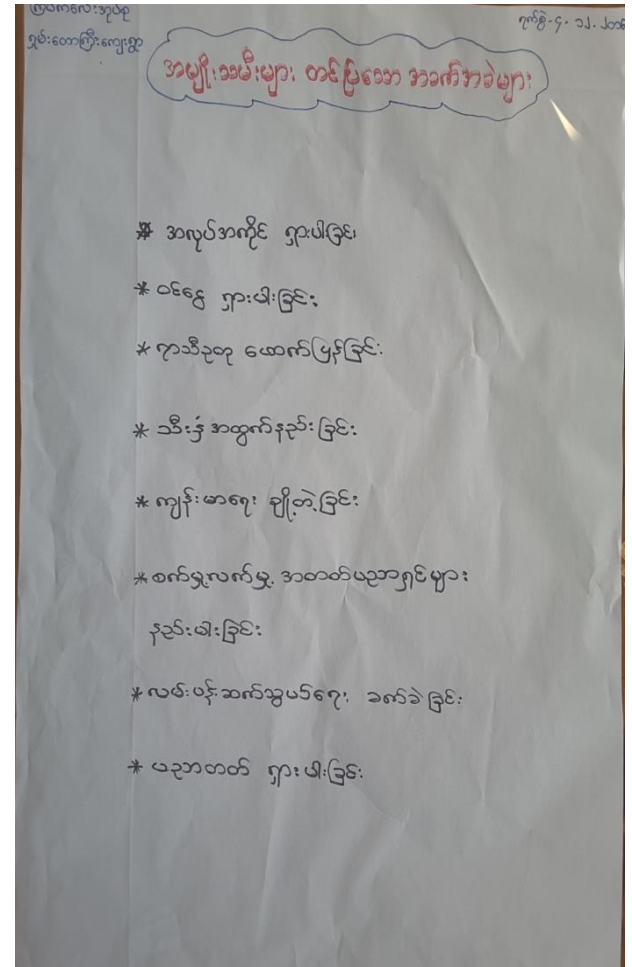 ရက်စွဲ - ၄ - ၁၂ - ၂၀၁
ရှမ်းတောကြီးကျေးရွာ
အမျိုးသမီးများ တင်ပြသော အခက်အခဲများ
* အလုပ်အကိုင် ရှားပါးခြင်း
* ဝင်ငွေ ရှားပါးခြင်း
* ရာသီဥတု ဖောက်ပြန်ခြင်း
* သီးနှံ အထွက်နည်းခြင်း
* ကျန်းမာရေး ချို့တဲ့ခြင်း
* စက်မှု့လက်မှု့ အတတ်ပညာရှင်များ
နည်းပါးခြင်း
* လမ်းပန်းဆက်သွယ်ရေး ခက်ခဲခြင်း
* ပညာတတ် ရှားပါးခြင်း